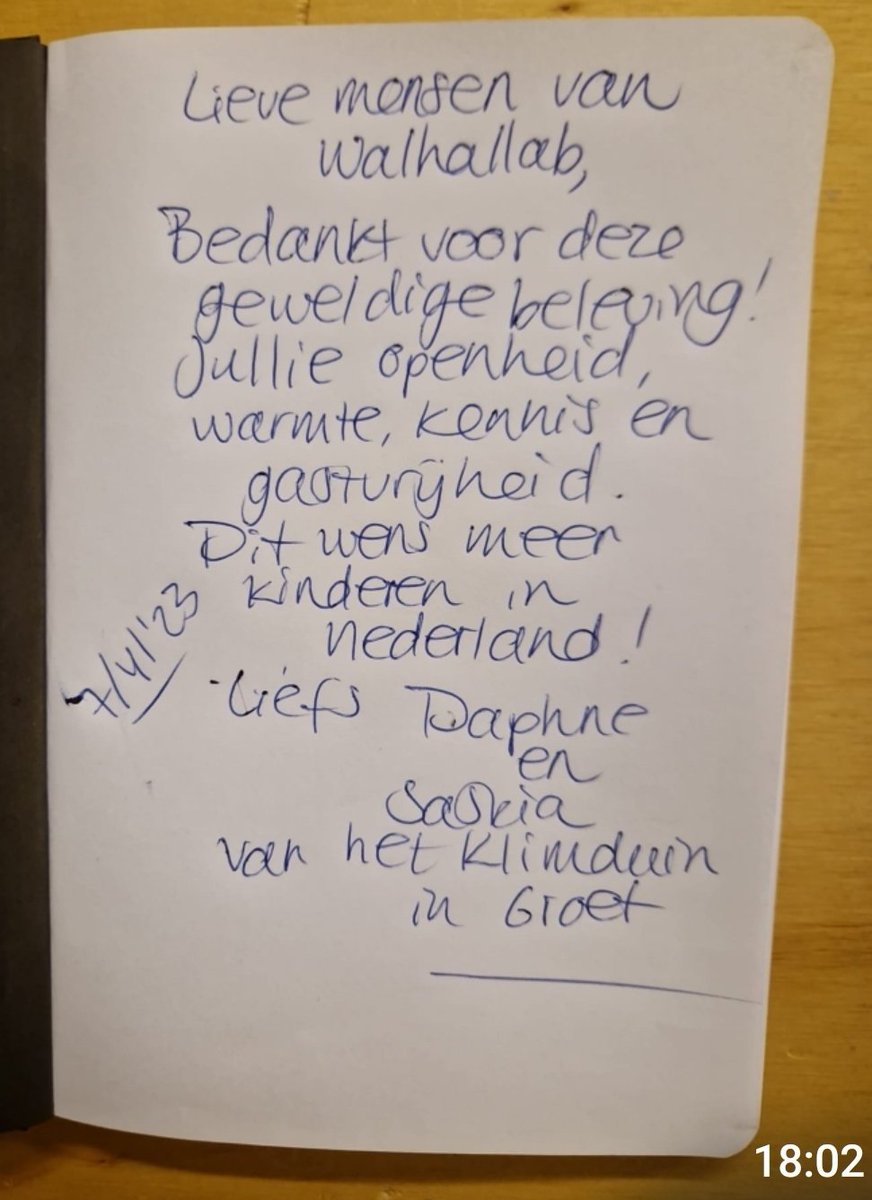 Lieve mensen van
Walhallab,
Bedankt voor deze
geweldige beleving!
Jullie openheid,
warmte, kennis en
gastvrijheid.
Dit wens meer
kinderen in
Nederland!
7/4/'23
Liefs Daphne
en
Saskia
van het Klimduin
in Groet
18:02